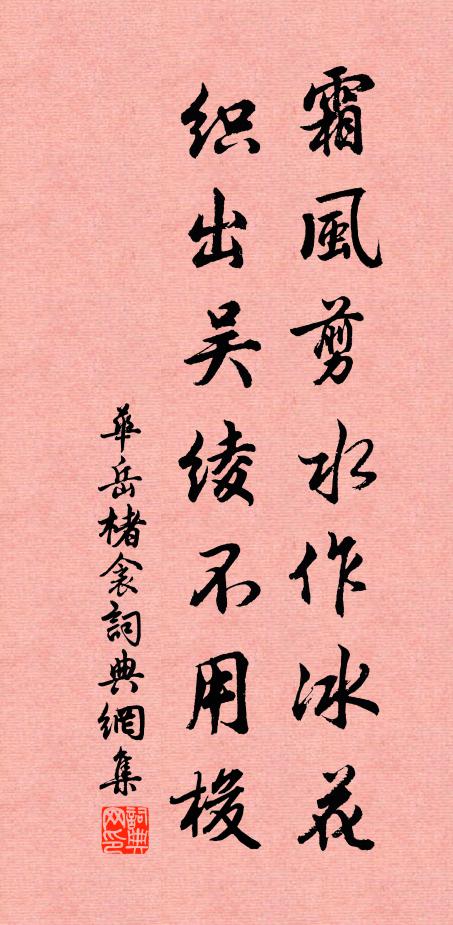 霜風剪水作冰花
织出吴绫不用梭
華岳楮衾詞典網集
詞典网印